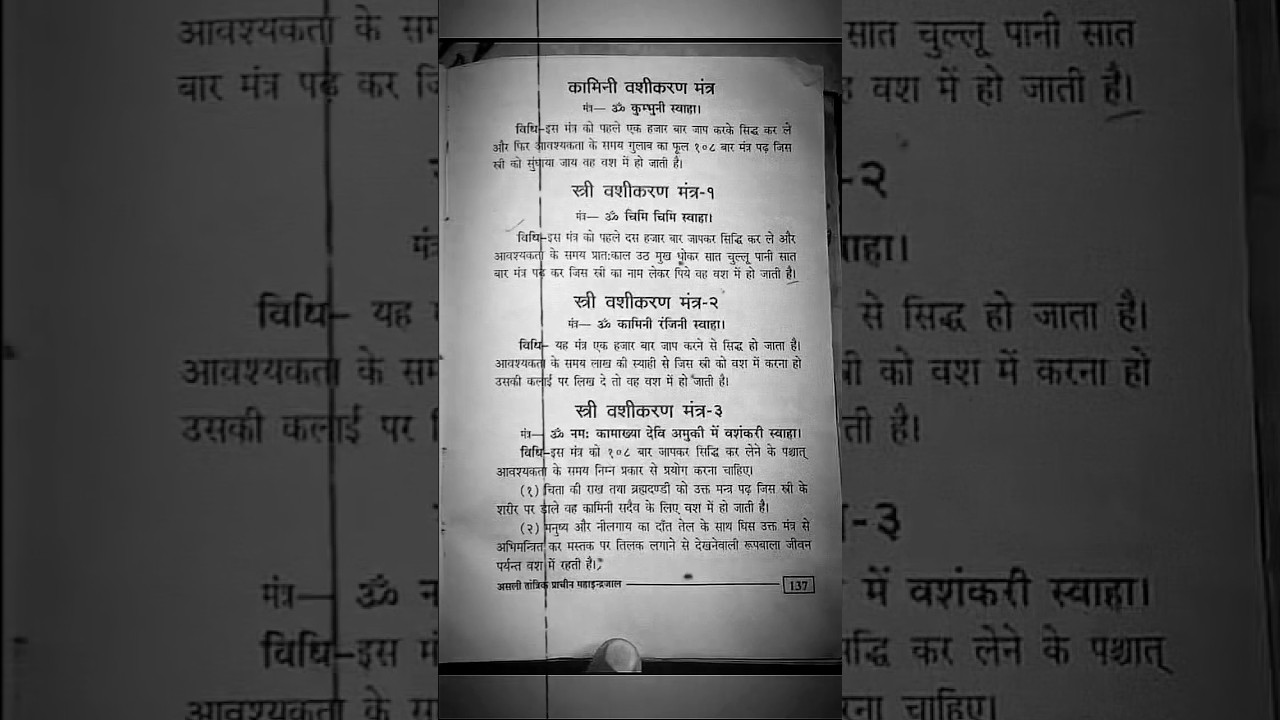 कामिनी वशीकरण मंत्र
मंत्र— ॐ कुम्भुनी स्वाहा।
विधि–इस मंत्र को पहले एक हजार बार जाप करके सिद्ध कर ले
और फिर आवश्यकता के समय गुलाब का फूल १०८ बार मंत्र पढ़ जिस
स्त्री को सुंघाया जाय वह वश में हो जाती है।
स्त्री वशीकरण मंत्र-१
मंत्र— ॐ चिमि चिमि स्वाहा।
विधि–इस मंत्र को पहले दस हजार बार जापकर सिद्धि कर ले और
आवश्यकता के समय प्रात:काल उठ मुख धोकर सात चुल्लू पानी सात
बार मंत्र पढ़ कर जिस स्त्री का नाम लेकर पिये वह वश में हो जाती है।
स्त्री वशीकरण मंत्र-२
मंत्र— ॐ कामिनी रंजिनी स्वाहा।
विधि– यह मंत्र एक हजार बार जाप करने से सिद्ध हो जाता है।
आवश्यकता के समय लाख की स्याही से जिस स्त्री को वश में करना हो
उसकी कलाई पर लिख दे तो वह वश में हो जाती है।
स्त्री वशीकरण मंत्र-३
मंत्र— ॐ नम: कामाख्या देवि अमुकी में वशंकरी स्वाहा।
विधि–इस मंत्र को १०८ बार जापकर सिद्धि कर लेने के पश्चात्
आवश्यकता के समय निम्न प्रकार से प्रयोग करना चाहिए।
(१) चिता की राख तथा ब्रह्मदण्डी को उक्त मन्त्र पढ़ जिस स्त्री के
शरीर पर डाले वह कामिनी सदैव के लिए वश में हो जाती है।
(२) मनुष्य और नीलगाय का दाँत तेल के साथ घिस उक्त मंत्र से
अभिमन्त्रित कर मस्तक पर तिलक लगाने से देखनेवाली रूपबाला जीवन
पर्यन्त वश में रहती है।
असली तांत्रिक प्राचीन महाइन्द्रजाल 137